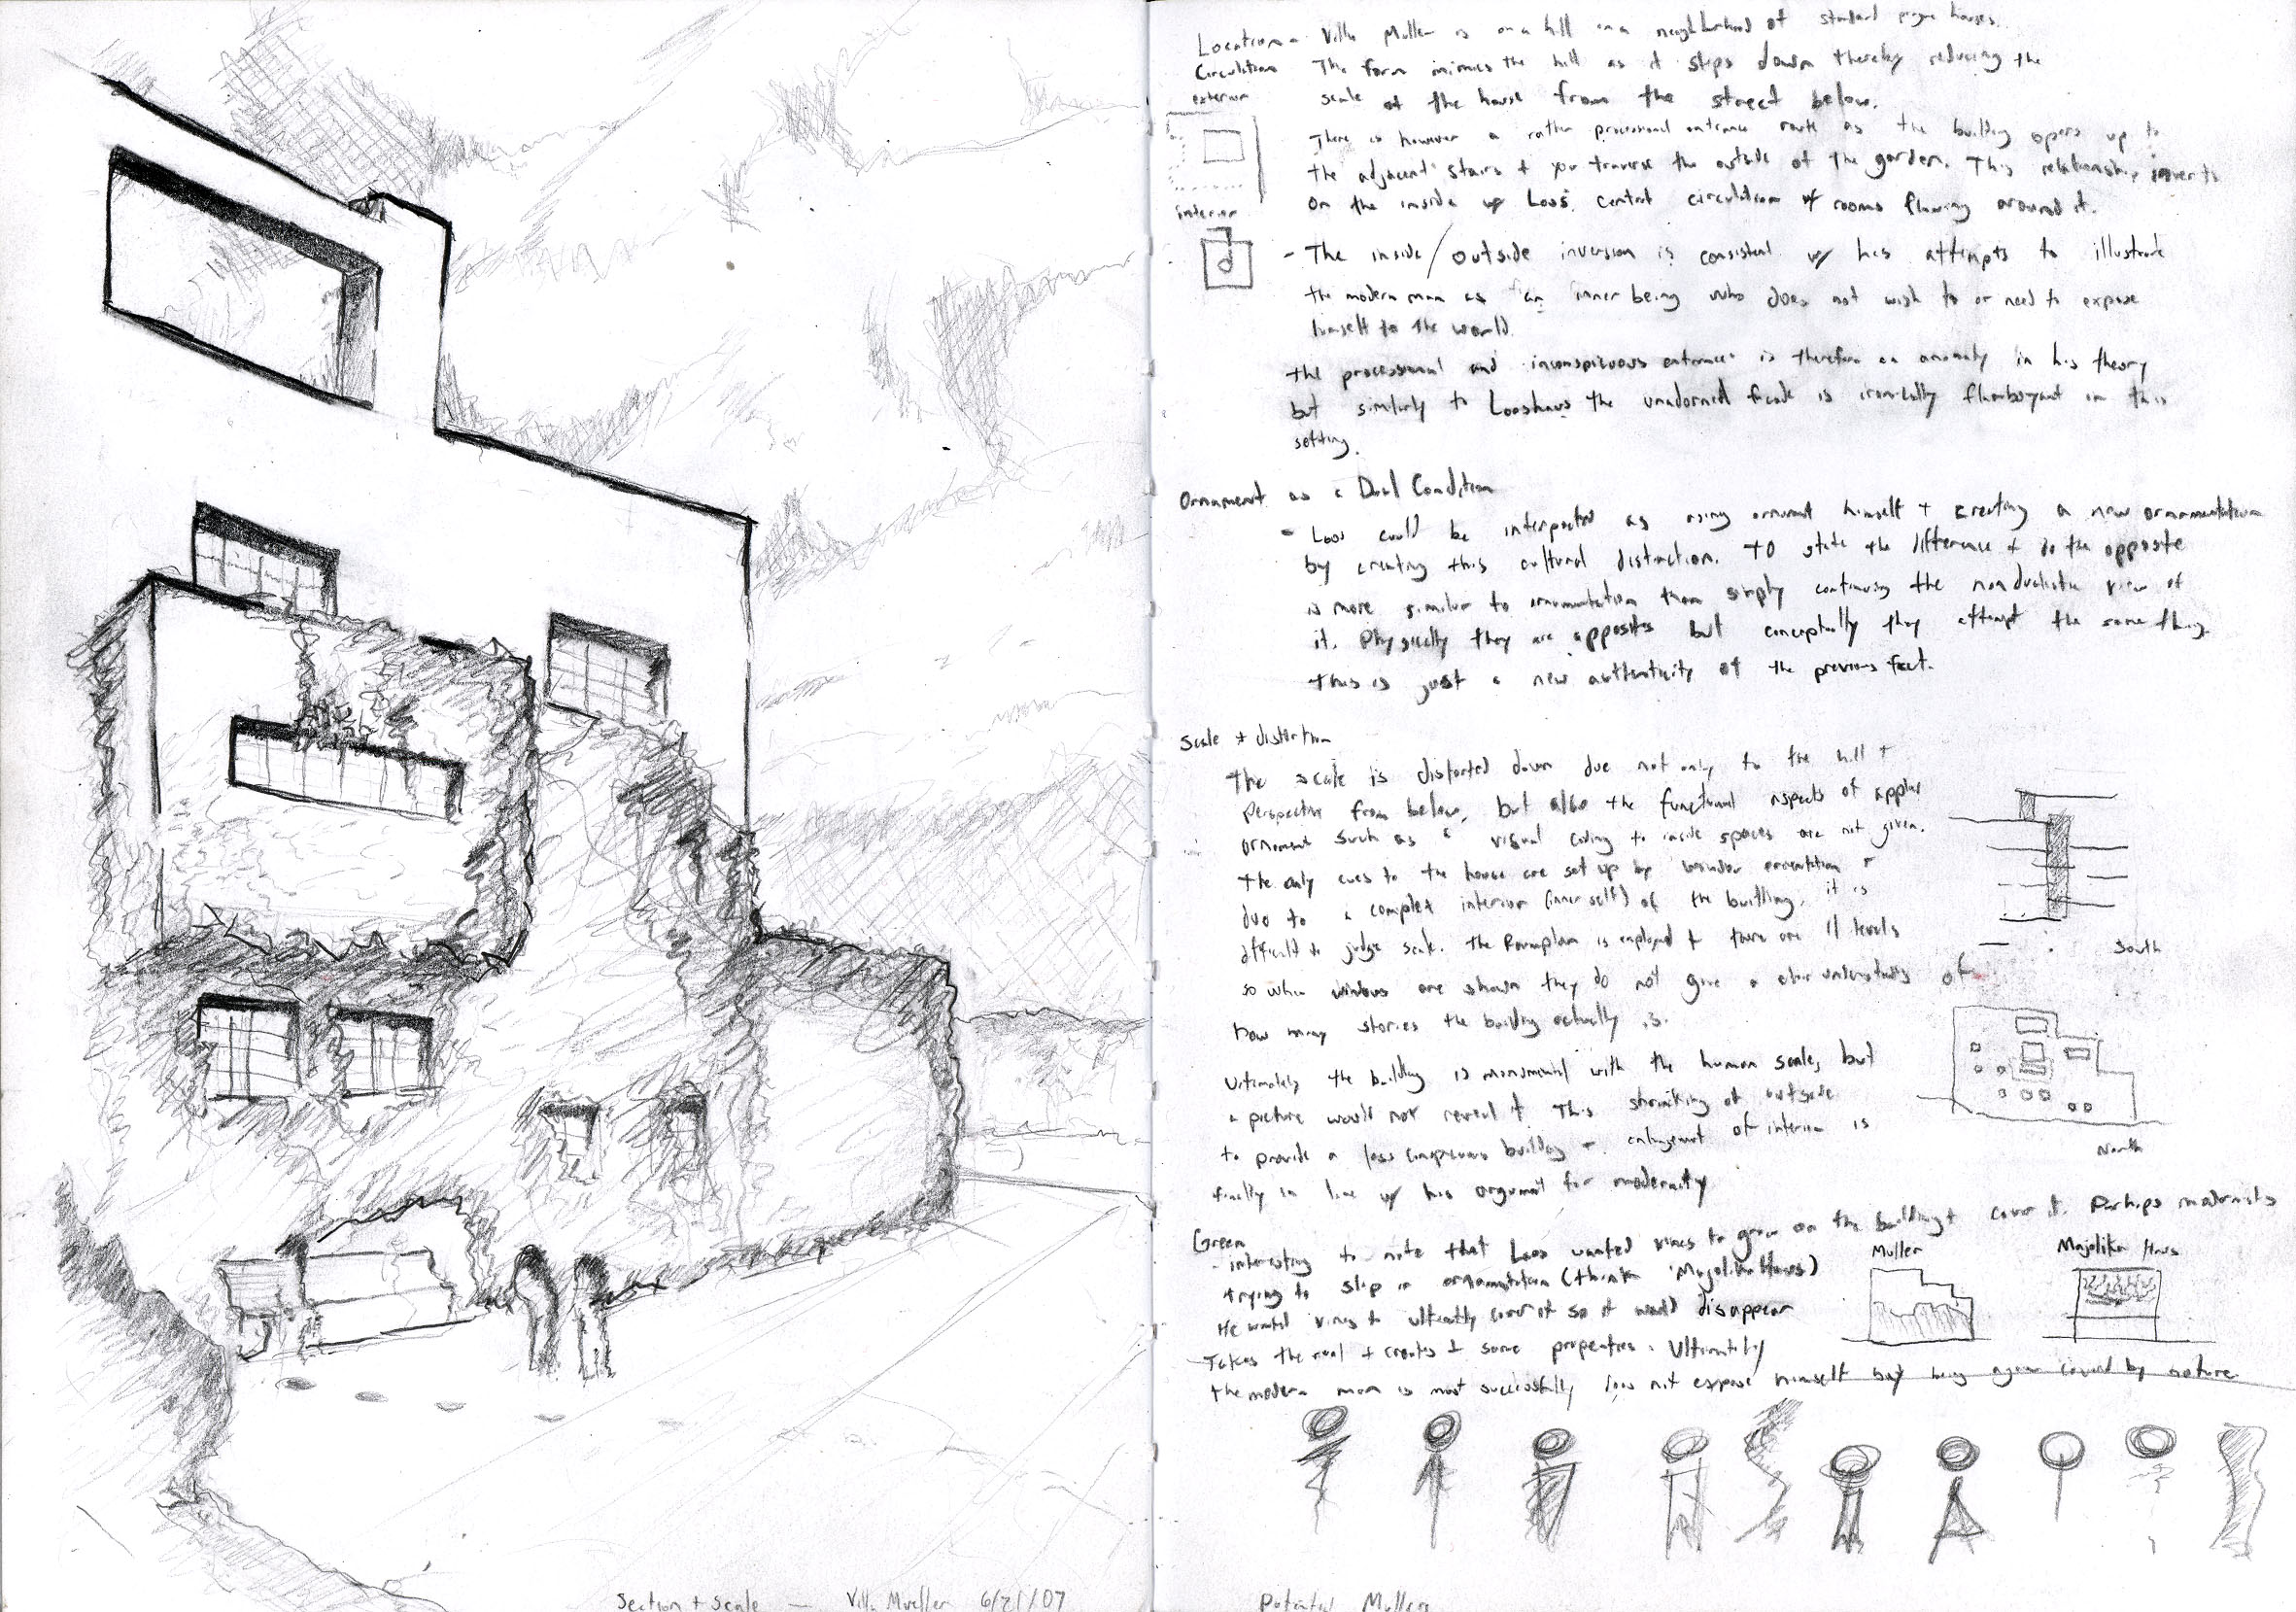 Section + Scale — Villa Mueller 6/21/07
Location - Villa Muller is on a hill in a neighborhood of standard prague houses.
Circulation The form mimics the hill as it steps down thereby reducing the
exterior scale of the house from the street below.
There is however a rather processional entrance route as the building opens up to
the adjacent stairs + you traverse the outside of the garden. This relationship inverts
interior
on the inside w/ Loos' central circulation w/ rooms flowing around it.
- The inside/outside inversion is consistent w/ his attempts to illustrate
the modern man as an inner being who does not wish to or need to expose
himself to the world.
the processional and inconspicuous entrance is therefore an anomaly in his theory
but similarly to Looshaus the unadorned facade is ironically flamboyant in this
setting.
Ornament as a Dual Condition
- Loos could be interpreted as using ornament himself + creating a new ornamentation
by creating this cultural distinction. To state the difference + do the opposite
is more similar to ornamentation than simply continuing the nondualistic view of
it. Physically they are opposites but conceptually they attempt the same thing.
this is just a new authenticity of the previous fact.
Scale + distortion
The scale is distorted down due not only to the hill +
perspective from below, but also the functional aspects of applied
ornament such as a visual coding to inside spaces are not given.
the only cues to the house are set up by window orientation +
due to a complex interior (inner self) of the building, it is
difficult to judge scale. The Raumplan is employed + there are 11 levels
so when windows are shown they do not give a clear understanding of
how many stories the building actually is.
South
Ultimately the building is monumental with the human scale, but
a picture would not reveal it. This shrinking of outside
to provide a less conspicuous building + enlargement of interior is
finally in line w/ his argument for modernity
North
Green
- interesting to note that Loos wanted vines to grow on the building + cover it. Perhaps modernists
trying to slip in ornamentation (think Majolika Haus)
Muller Majolika Haus
He wanted vines to ultimately cover it so it would disappear
- Takes the real + creates + some properties. Ultimately
the modern man is most successfully does not expose himself by being again covered by nature
Muller